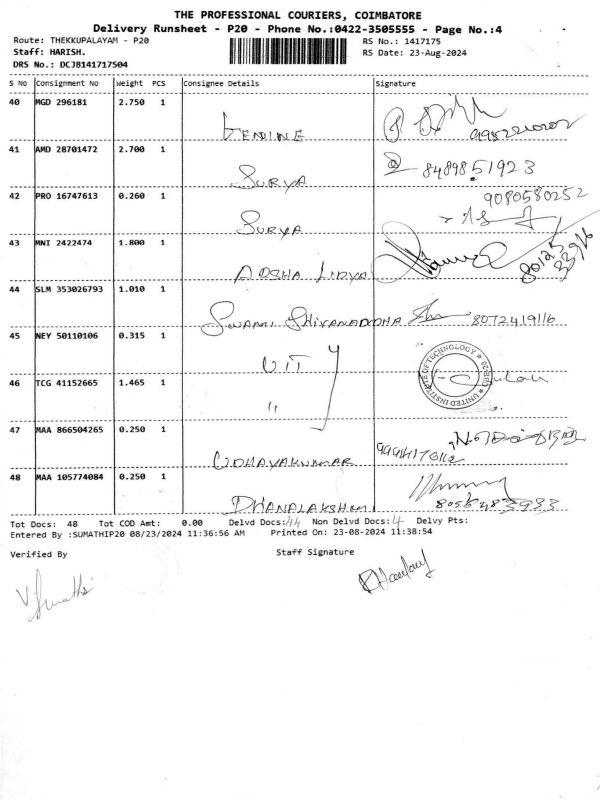 THE PROFESSIONAL COURIERS, COIMBATORE
Delivery Runsheet - P20 - Phone No.:0422-3505555 - Page No.:4
Route: THEKKUPALAYAM - P20 RS No.: 1417175
Staff: HARISH. RS Date: 23-Aug-2024
DRS No.: DCJB141717504
S No Consignment No Weight PCS Consignee Details Signature
40 MGD 296181 2.750 1
41 AMD 28701472 2.700 1 8489851923
SURYA
42 PRO 16747613 0.260 1 9080580252
SURYA
43 MNI 2422474 1.800 1
44 SLM 353026793 1.010 1
8072419116
45 NEY 50110106 0.315 1
UIT
46 TCG 41152665 1.465 1
"
UNITED INSTITUTE OF TECHNOLOGY
47 MAA 866504265 0.250 1
UDHAYAKUMAR
48 MAA 105774084 0.250 1
DHANALAKSHMI
Tot Docs: 48 Tot COD Amt: 0.00 Delvd Docs: 44 Non Delvd Docs: 4 Delvy Pts:
Entered By :SUMATHIP20 08/23/2024 11:36:56 AM Printed On: 23-08-2024 11:38:54
Verified By Staff Signature